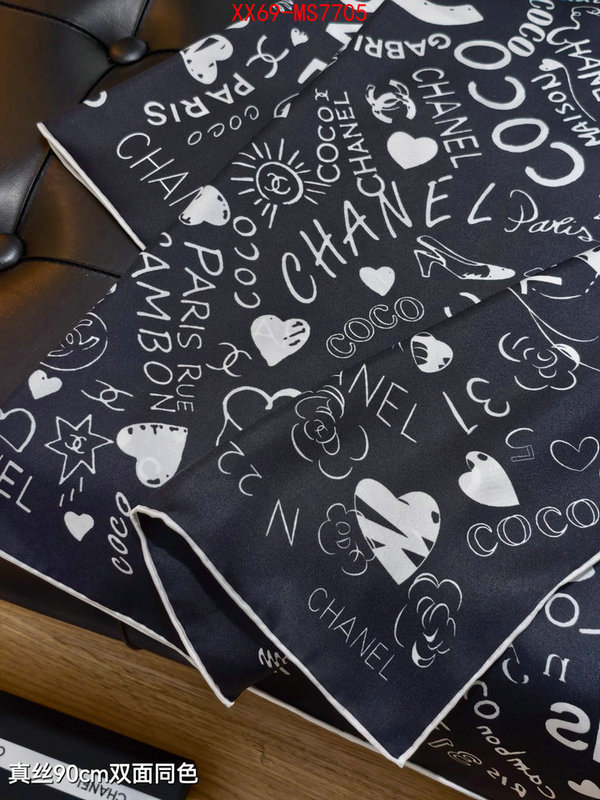 XX69-MS7705
COCO
GABRI
COCO
CHANEL
MAISON
COCO
CHANEL
PARIS
PARIS
COCO
CHAN
COCO
CHANEL
CHANEL
Paris
COCO
PARIS RUE
CAMBON
COCO
NEL
31
5
22
COCO
NEL
COCO
N
CHANEL
CHANEL
真丝90cm双面同色